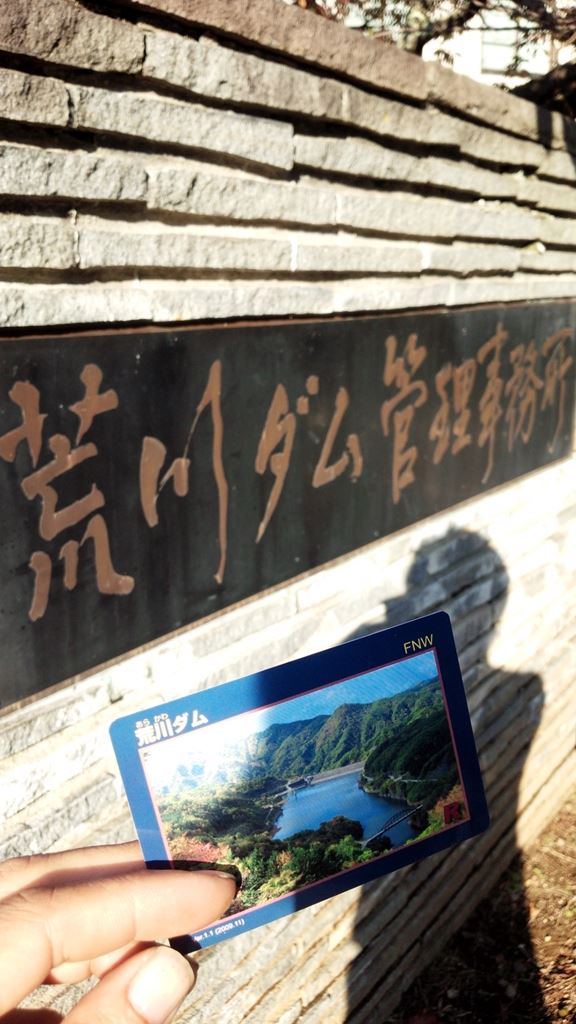 荒川ダム管理事務所
FNW
あらかわ
荒川ダム
R
Ver.1.1 (2009.11)